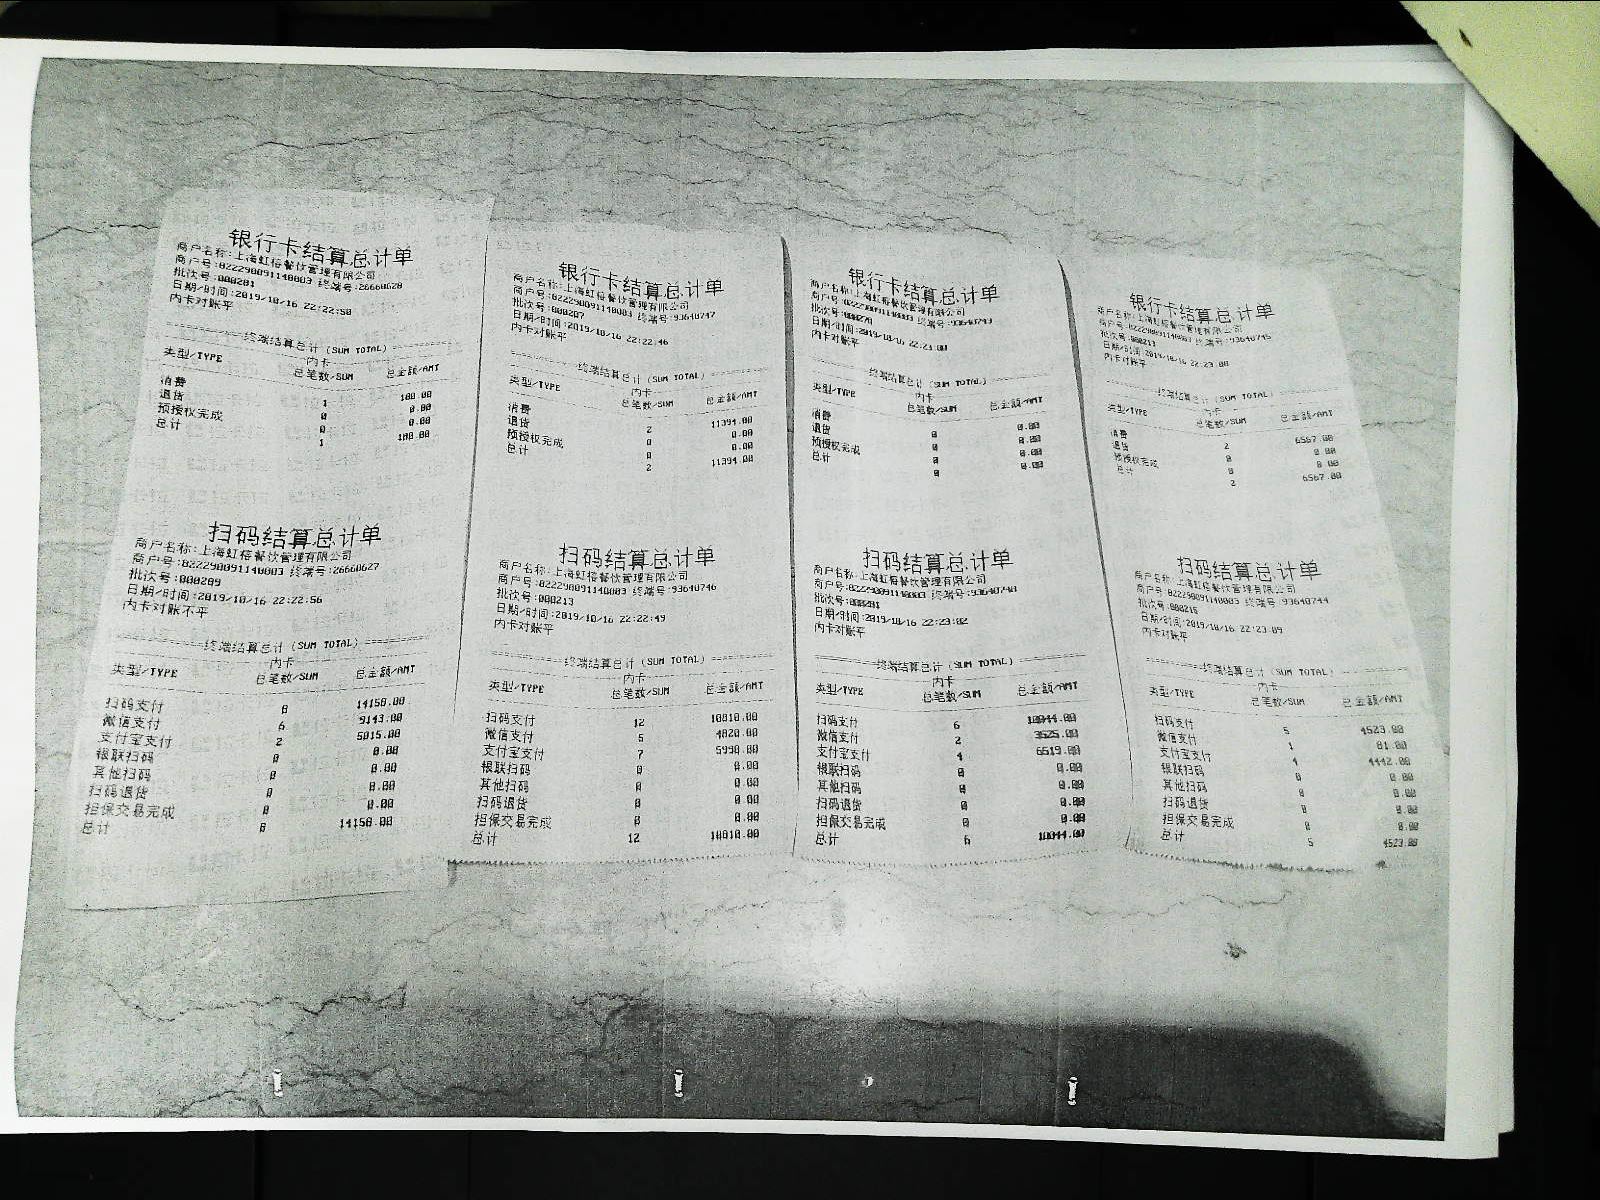 银行卡结算总计单
商户名称:上海虹禧餐饮管理有限公司
商户号:822290091140003 终端号:26660628
批次号:000201
日期/时间:2019/10/16 22:22:50
内卡对账平
终端结算总计(SUM TOTAL)
内卡
类型/TYPE 总笔数/SUM 总金额/AMT
消费 1 100.00
退货 0 0.00
预授权完成 0 0.00
总计 1 100.00
扫码结算总计单
商户名称:上海虹禧餐饮管理有限公司
商户号:822290091140003 终端号:26660627
批次号:000209
日期/时间:2019/10/16 22:22:56
内卡对账不平
终端结算总计(SUM TOTAL)
内卡
类型/TYPE 总笔数/SUM 总金额/AMT
扫码支付 8 14158.00
微信支付 6 9143.00
支付宝支付 2 5015.00
银联扫码 0 0.00
其他扫码 0 0.00
扫码退货 0 0.00
担保交易完成 0 0.00
总计 8 14158.00
银行卡结算总计单
商户名称:上海虹禧餐饮管理有限公司
商户号:822290091140003 终端号:93640747
批次号:000207
日期/时间:2019/10/16 22:22:46
内卡对账平
终端结算总计(SUM TOTAL)
内卡
类型/TYPE 总笔数/SUM 总金额/AMT
消费 2 11394.00
退货 0 0.00
预授权完成 0 0.00
总计 2 11394.00
扫码结算总计单
商户名称:上海虹禧餐饮管理有限公司
商户号:822290091140003 终端号:93640746
批次号:000213
日期/时间:2019/10/16 22:22:49
内卡对账平
终端结算总计(SUM TOTAL)
内卡
类型/TYPE 总笔数/SUM 总金额/AMT
扫码支付 12 10810.00
微信支付 5 4820.00
支付宝支付 7 5990.00
银联扫码 0 0.00
其他扫码 0 0.00
扫码退货 0 0.00
担保交易完成 0 0.00
总计 12 10810.00
银行卡结算总计单
商户名称:上海虹禧餐饮管理有限公司
商户号:822290091140003 终端号:93640749
批次号:
日期/时间:2019/10/16 22:23:00
内卡对账平
终端结算总计(SUM TOTAL)
内卡
类型/TYPE 总笔数/SUM 总金额/AMT
消费 0 0.00
退货 0 0.00
预授权完成 0 0.00
总计 0 0.00
扫码结算总计单
商户名称:上海虹禧餐饮管理有限公司
商户号:822290091140003 终端号:93640748
批次号:
日期/时间:2019/10/16 22:23:02
内卡对账平
终端结算总计(SUM TOTAL)
内卡
类型/TYPE 总笔数/SUM 总金额/AMT
扫码支付 6 10044.00
微信支付 2 3525.00
支付宝支付 4 6519.00
银联扫码 0 0.00
其他扫码 0 0.00
扫码退货 0 0.00
担保交易完成 0 0.00
总计 6 10044.00
银行卡结算总计单
商户名称:上海虹禧餐饮管理有限公司
商户号:822290091140003 终端号:93640745
批次号:000211
日期/时间:2019/10/16 22:23:08
内卡对账平
终端结算总计(SUM TOTAL)
内卡
类型/TYPE 总笔数/SUM 总金额/AMT
消费 2 6567.00
退货 0 0.00
预授权完成 0 0.00
总计 2 6567.00
扫码结算总计单
商户名称:上海虹禧餐饮管理有限公司
商户号:822290091140003 终端号:93640744
批次号:000216
日期/时间:2019/10/16 22:23:09
内卡对账平
终端结算总计(SUM TOTAL)
内卡
类型/TYPE 总笔数/SUM 总金额/AMT
扫码支付 5 4523.00
微信支付 1 81.00
支付宝支付 4 4442.00
银联扫码 0 0.00
其他扫码 0 0.00
扫码退货 0 0.00
担保交易完成 0 0.00
总计 5 4523.00